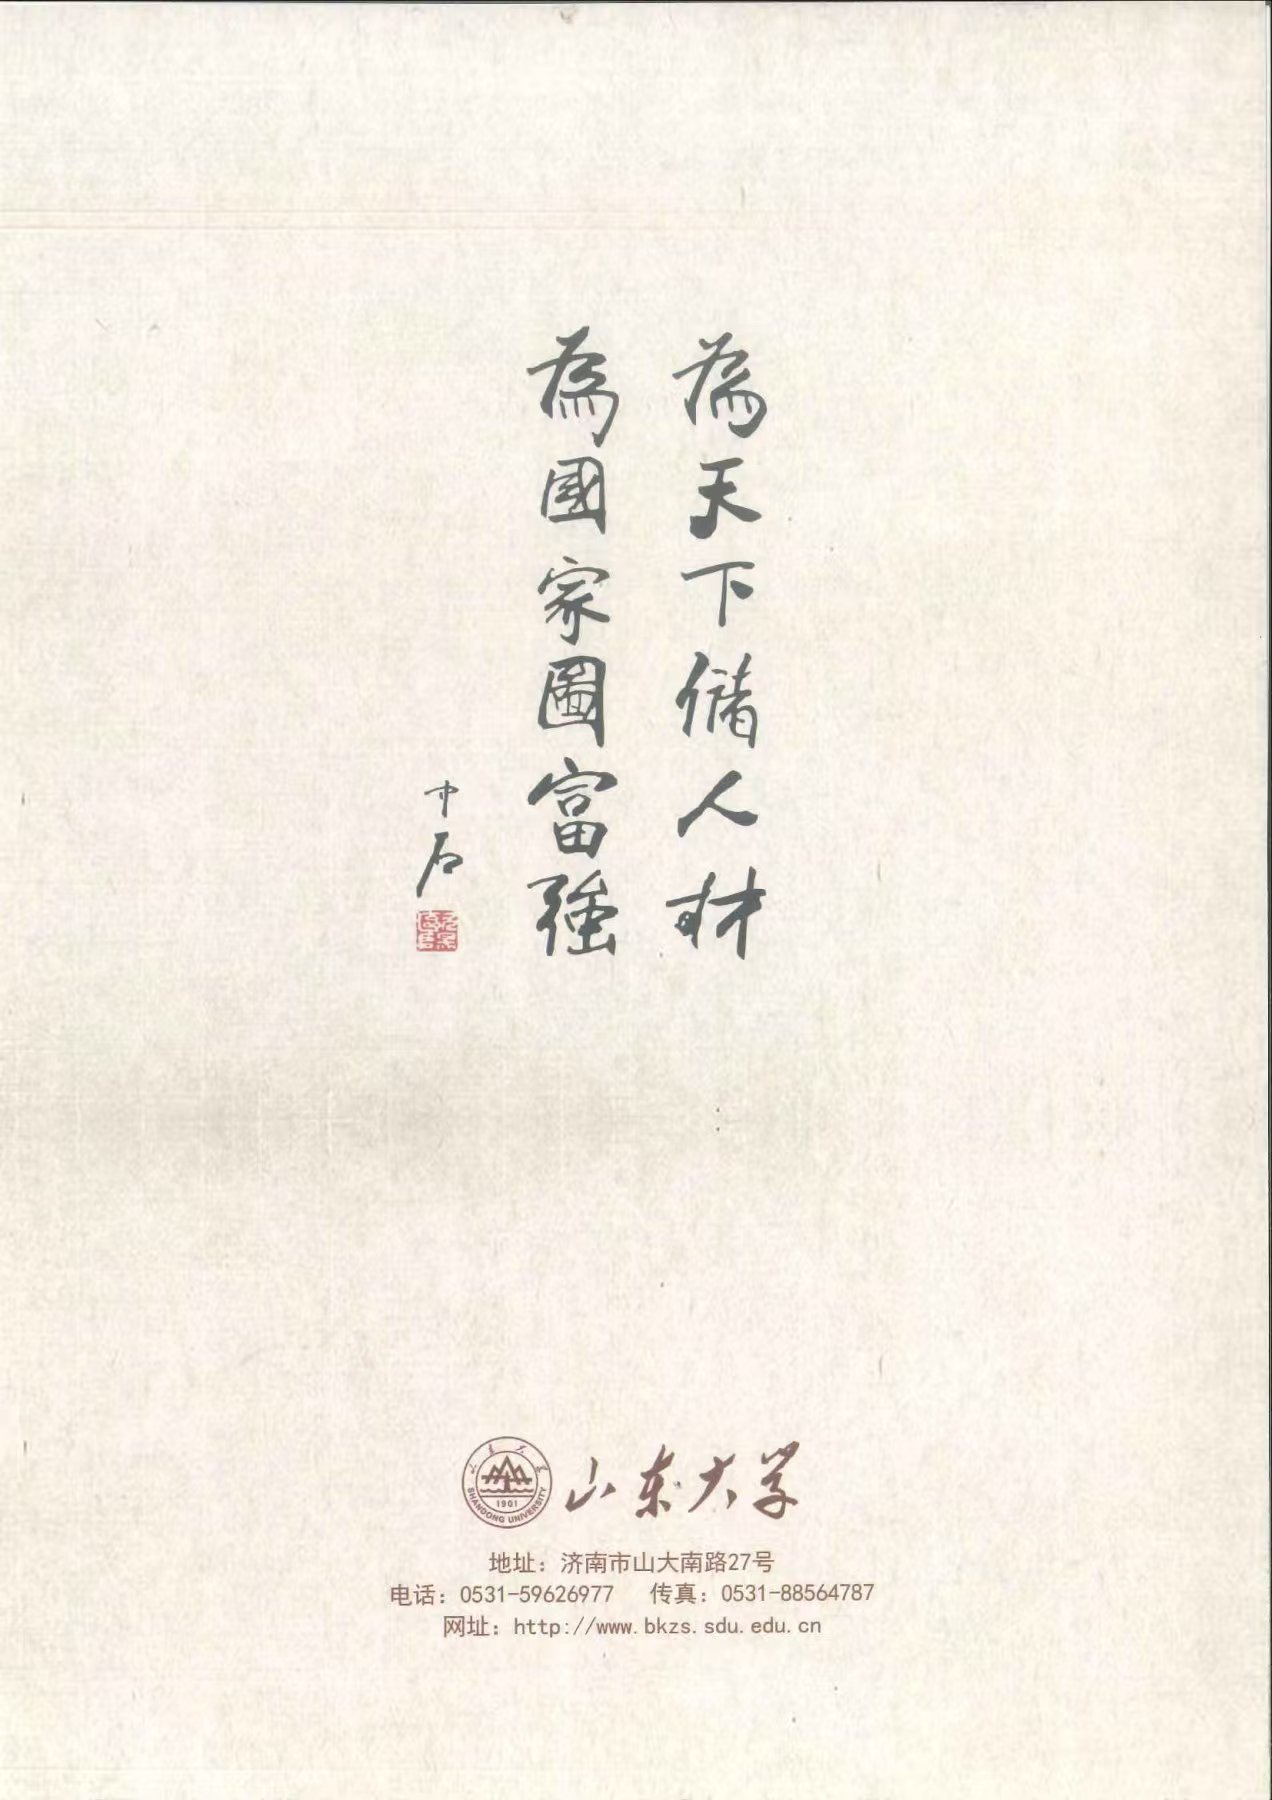 為天下儲人材
為國家圖富強
中石
山東大學
SHANDONG UNIVERSITY
1901
山东大学
地址：济南市山大南路27号
电话：0531-59626977 传真：0531-88564787
网址：http://www.bkzs.sdu.edu.cn